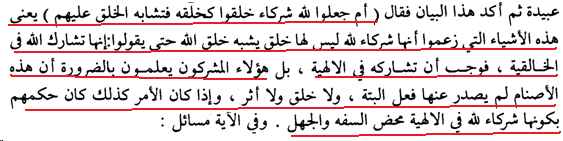 عبيدة ثم أكد هذا البيان فقال ( أم جعلوا لله شركاء خلقوا كخلقه فتشابه الخلق عليهم ) يعني
هذه الأشياء التي زعموا أنها شركاء لله ليس لها خلق يشبه خلق الله حتى يقولوا: إنها تشارك الله في
الخالقية ، فوجب أن تشاركه في الالهية ، بل هؤلاء المشركون يعلمون بالضرورة أن هذه
الأصنام لم يصدر عنها فعل البتة ، ولا خلق ولا أثر ، وإذا كان الأمر كذلك كان حكمهم
بكونها شركاء لله في الالهية محض السفه والجهل . وفي الآية مسائل :